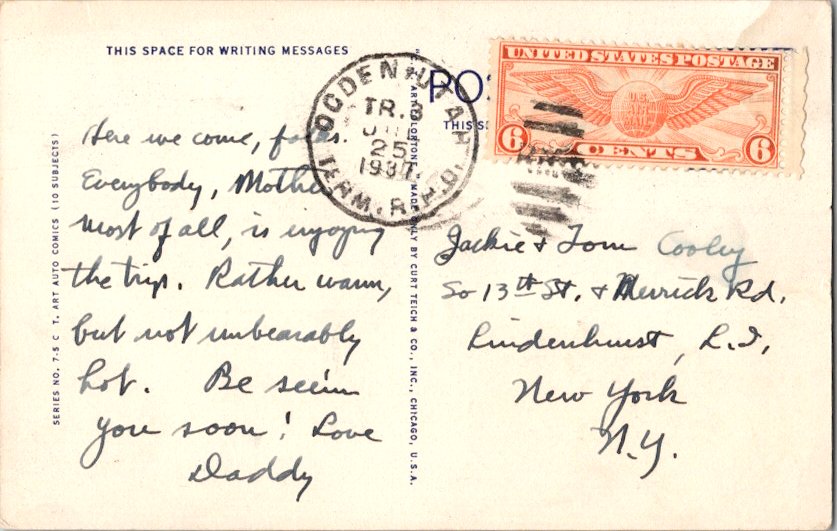 THIS SPACE FOR WRITING MESSAGES
Here we come, folks.
Everybody, Mother
most of all, is enjoying
the trip. Rather warm,
but not unbearably
hot. Be seein
you soon! Love
Daddy
SERIES NO. 7-S C. T. ART AUTO COMICS (10 SUBJECTS)
MADE ONLY BY CURT TEICH & CO., INC., CHICAGO, U.S.A.
OGDEN UTAH
TR.
25
1937
TERM. R.P.O.
PO
THIS S
UNITED STATES POSTAGE
U.S.
AIR
MAIL
6 CENTS 6
Jackie & Tom Cooley
So 13th St. & Merrick Rd.
Lindenhurst, L.I.,
New York
N.Y.